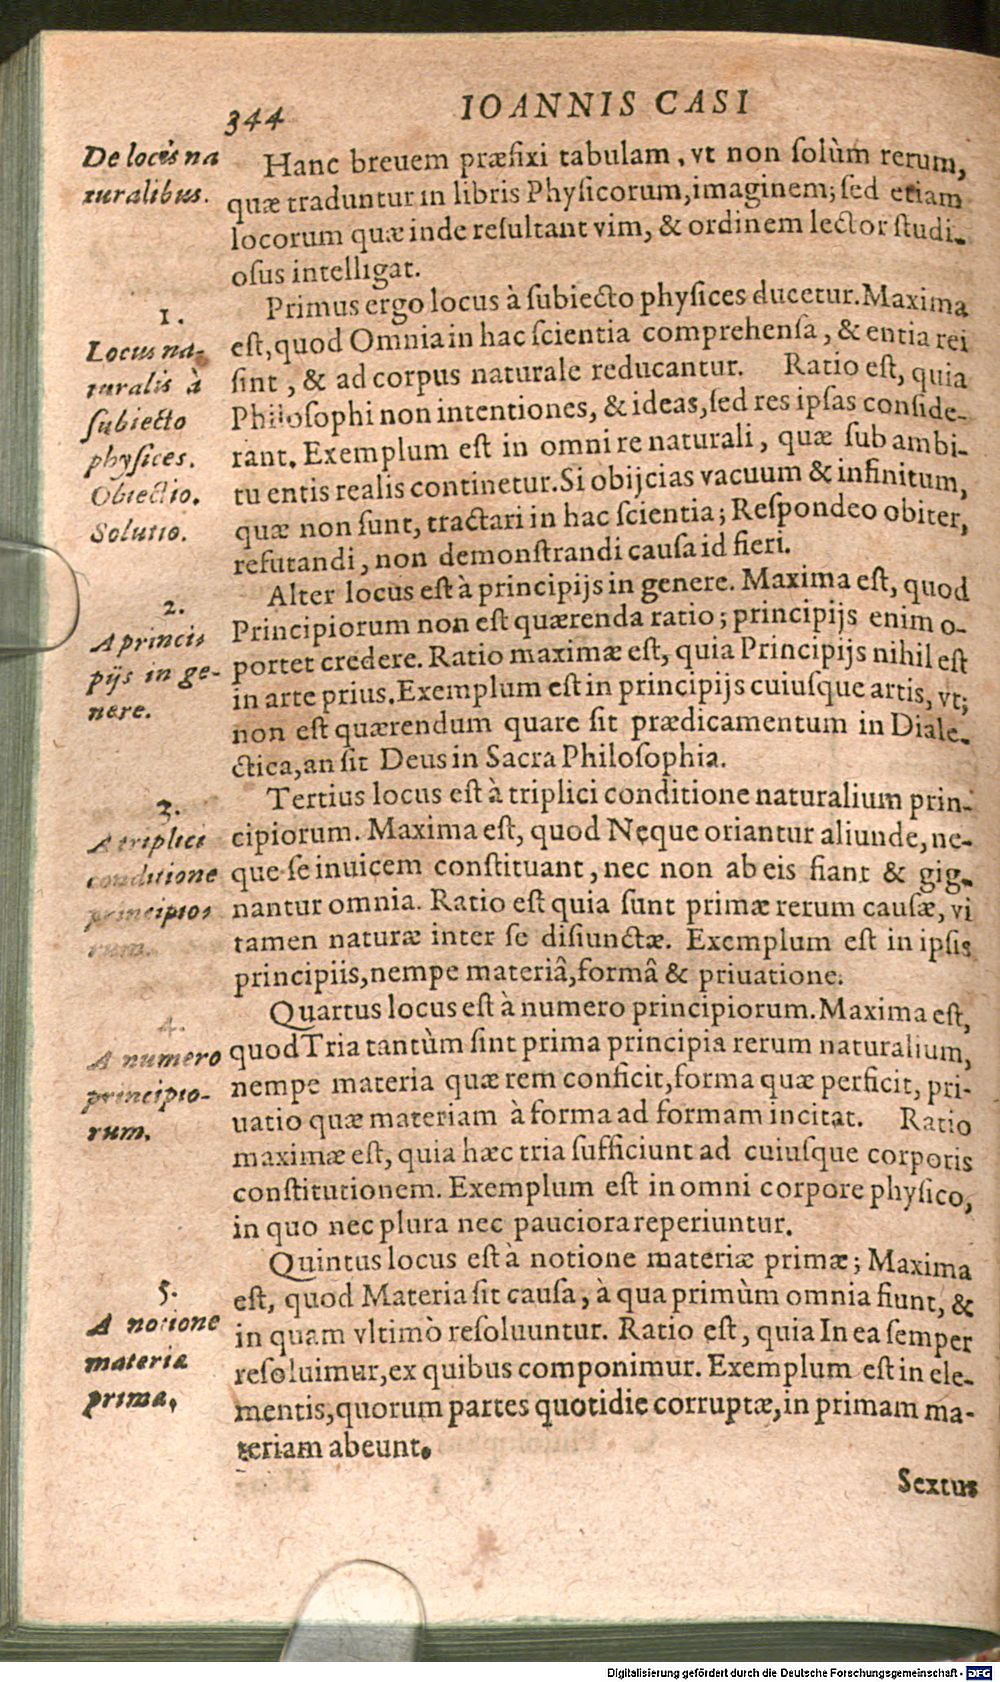 344
IOANNIS CASI
De locis na
turalibus.
Hanc breuem præfixi tabulam, vt non solùm rerum,
quæ traduntur in libris Physicorum, imaginem; sed etiam
locorum quæ inde resultant vim, & ordinem lector studi-
osus intelligat.
1.
Locus na-
turalis à
subiecto
physices.
Obiectio.
Solutio.
Primus ergo locus à subiecto physices ducetur. Maxima
est, quod Omnia in hac scientia comprehensa, & entia rei
sint, & ad corpus naturale reducantur. Ratio est, quia
Philosophi non intentiones, & ideas, sed res ipsas conside-
rant. Exemplum est in omni re naturali, quæ sub ambi-
tu entis realis continetur. Si obijcias vacuum & infinitum,
quæ non sunt, tractari in hac scientia; Respondeo obiter,
refutandi, non demonstrandi causa id fieri.
2.
A princi-
pijs in ge-
nere.
Alter locus est à principijs in genere. Maxima est, quod
Principiorum non est quærenda ratio; principijs enim o-
portet credere. Ratio maximæ est, quia Principijs nihil est
in arte prius. Exemplum est in principijs cuiusque artis, vt;
non est quærendum quare sit prædicamentum in Diale-
ctica, an sit Deus in Sacra Philosophia.
3.
A triplici
conditione
principio-
rum.
Tertius locus est à triplici conditione naturalium prin-
cipiorum. Maxima est, quod Nęque oriantur aliunde, ne-
que se inuicem constituant, nec non ab eis fiant & gig-
nantur omnia. Ratio est quia sunt primæ rerum causæ, vi
tamen naturæ inter se disiunctæ. Exemplum est in ipsis
principiis, nempe materiâ, formâ & priuatione.
4.
A numero
principio-
rum.
Quartus locus est à numero principiorum. Maxima est,
quod Tria tantùm sint prima principia rerum naturalium,
nempe materia quæ rem conficit, forma quæ perficit, pri-
uatio quæ materiam à forma ad formam incitat. Ratio
maximæ est, quia hæc tria sufficiunt ad cuiusque corporis
constitutionem. Exemplum est in omni corpore physico,
in quo nec plura nec pauciora reperiuntur.
5.
A notione
materiæ
primæ.
Quintus locus est à notione materiæ primæ; Maxima
est, quod Materia sit causa, à qua primùm omnia fiunt, &
in quam vltimò resoluuntur. Ratio est, quia In ea semper
resoluimur, ex quibus componimur. Exemplum est in ele-
mentis, quorum partes quotidie corruptæ, in primam ma-
teriam abeunt.
Sextus
Digitalisierung gefördert durch die Deutsche Forschungsgemeinschaft - DFG